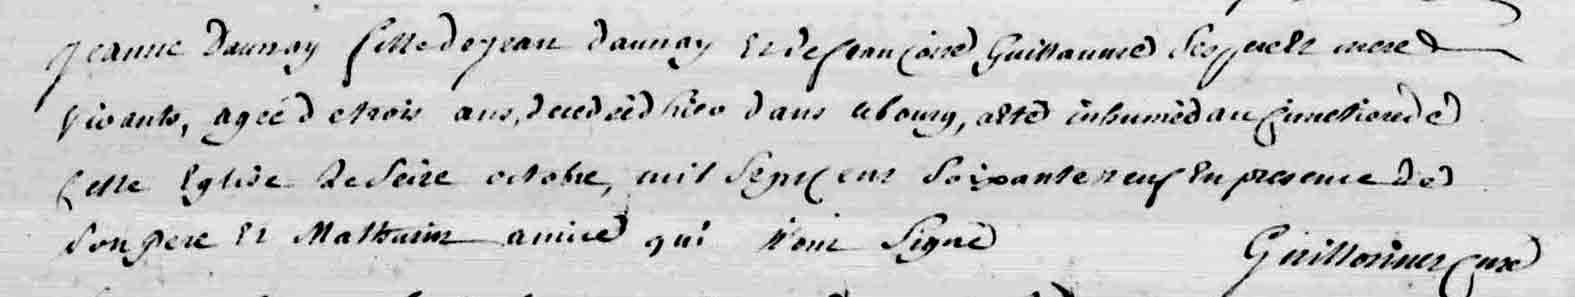 Jeanne Daunay fille de jean daunay Et de francoise Guillaume Ses pere Et mere
vivants, agée de trois ans, decedée hier dans le bourg, a été inhumée au cimetiere de
Cette Eglise Le Seize octobre, mil Sept Cent Soixante neuf En presence de
Son pere Et Mathurin qui n'ont Signé
Guillonneu Curé